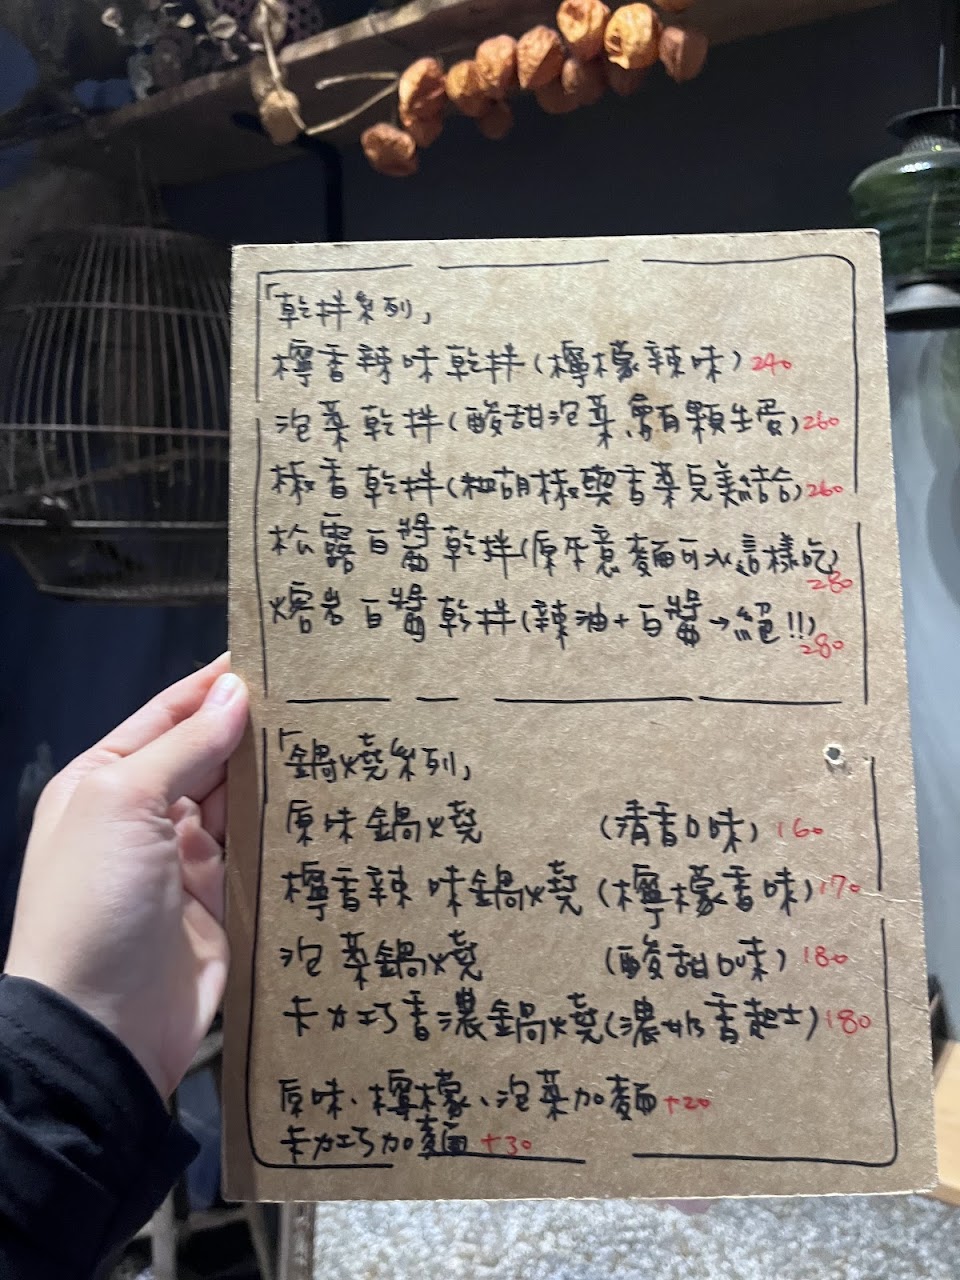 「乾拌系列」
檸香辣味乾拌(檸檬辣味)240
泡菜乾拌(酸甜泡菜,附有顆生蛋)260
椒香乾拌(粗胡椒與香菜完美結合)260
松露白醬乾拌(原來意麵可以這樣吃)280
熔岩白醬乾拌(辣油+白醬→絕!!)280
「鍋燒系列」
原味鍋燒 (清香口味)160
檸香辣味鍋燒(檸檬香味)170
泡菜鍋燒 (酸甜口味)180
卡加巧香濃鍋燒(濃奶香起士)180
原味、檸檬、泡菜加麵+20
卡加巧加麵+30